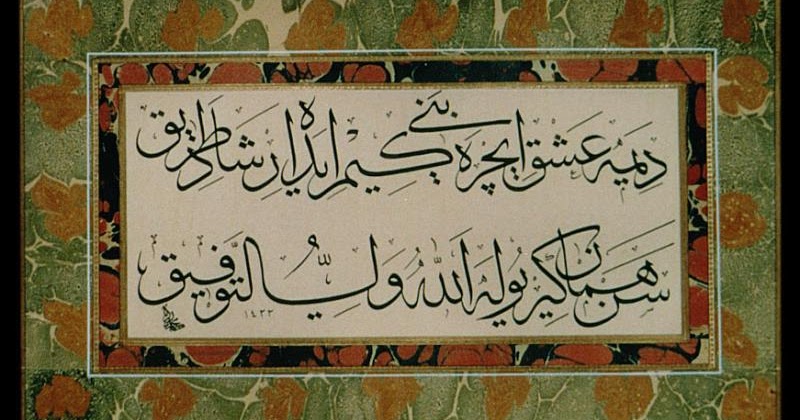 دیمه عشق ایچره بنی کیم ایده ارشاد طریق
سن همان کیر یوله الله ولیّ التّوفیق
١٤٢٢